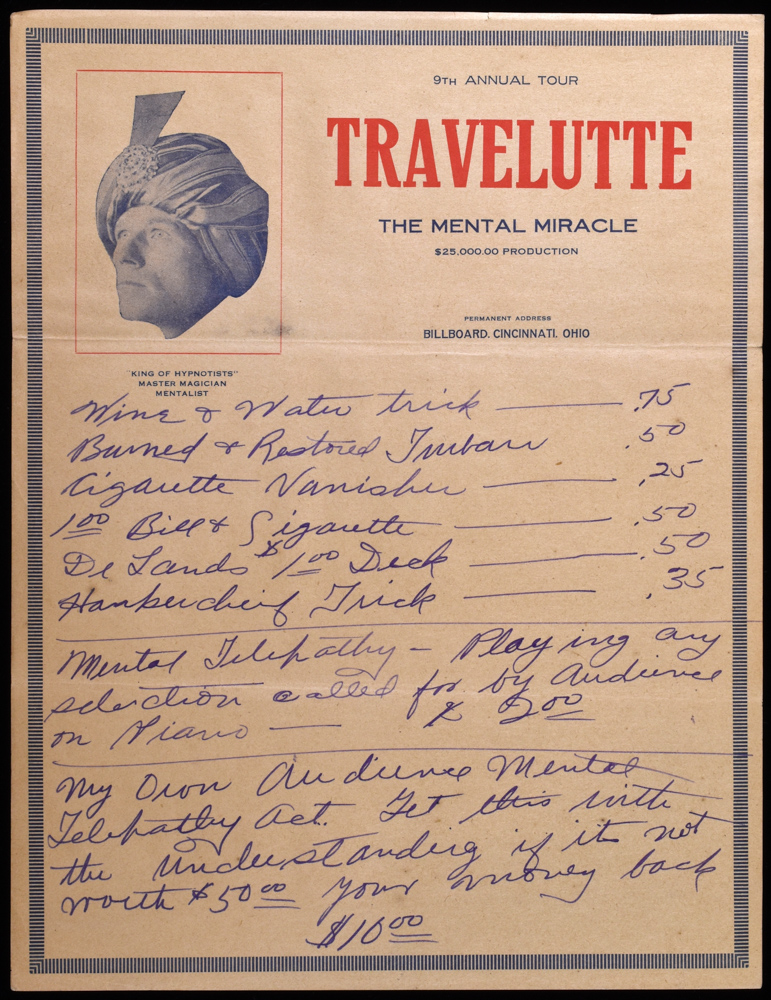 9TH ANNUAL TOUR
TRAVELUTTE
THE MENTAL MIRACLE
$25,000.00 PRODUCTION
PERMANENT ADDRESS
BILLBOARD, CINCINNATI, OHIO
"KING OF HYPNOTISTS"
MASTER MAGICIAN
MENTALIST
Wine & Water trick — .75
Burned & Restored Turban .50
Cigarette Vanisher — .25
1.00 Bill & Cigarette — .50
De Lands $1.00 Deck — .50
Hankerchief Trick — .35
Mental Telepathy – Playing any
selection called for by Audience
on Piano — $ 2.00
My Own Audience Mental
Telepathy Act. Get this with
the understanding if its not
worth $50.00 your money back
$10.00